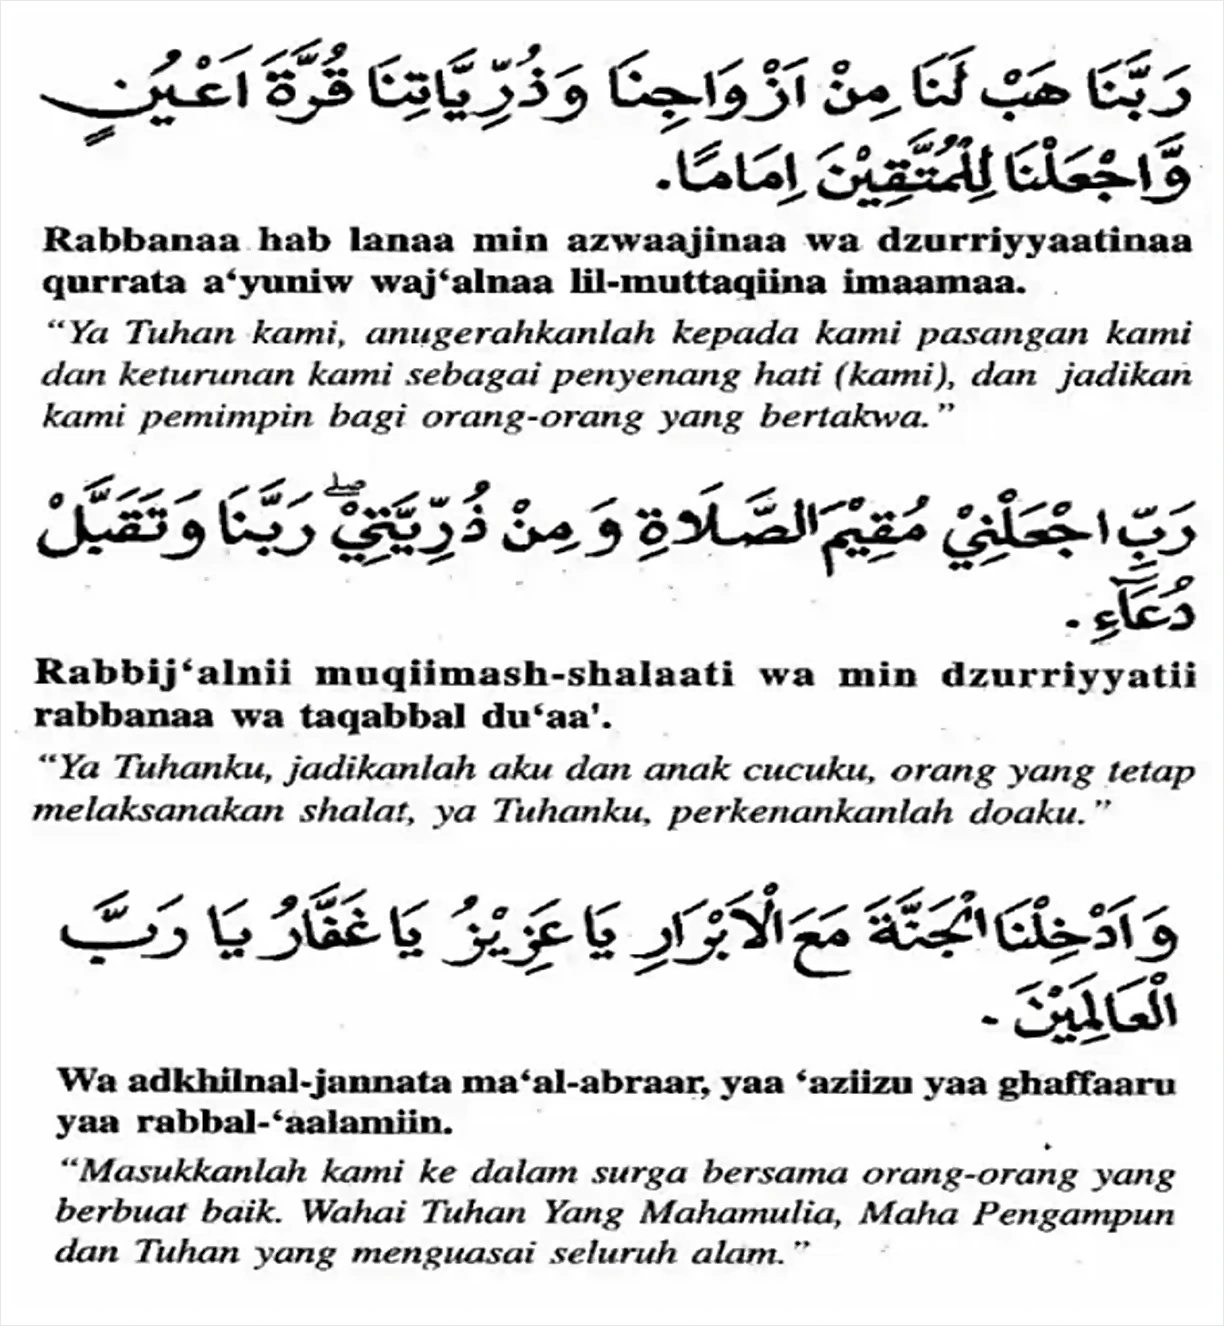 رَبَّنَا هَبْ لَنَا مِنْ اَزْوَاجِنَا وَذُرِّيَّاتِنَا قُرَّةَ اَعْيُنٍ
وَّاجْعَلْنَا لِلْمُتَّقِيْنَ اِمَامًا.
Rabbanaa hab lanaa min azwaajinaa wa dzurriyyaatinaa
qurrata a‘yuniw waj‘alnaa lil-muttaqiina imaamaa.
“Ya Tuhan kami, anugerahkanlah kepada kami pasangan kami
dan keturunan kami sebagai penyenang hati (kami), dan jadikan
kami pemimpin bagi orang-orang yang bertakwa.”
رَبِّ اجْعَلْنِيْ مُقِيْمَ الصَّلَاةِ وَمِنْ ذُرِّيَّتِيْۖ رَبَّنَا وَتَقَبَّلْ
دُعَآءِ.
Rabbij‘alnii muqiimash-shalaati wa min dzurriyyatii
rabbanaa wa taqabbal du‘aa'.
“Ya Tuhanku, jadikanlah aku dan anak cucuku, orang yang tetap
melaksanakan shalat, ya Tuhanku, perkenankanlah doaku.”
وَاَدْخِلْنَا الْجَنَّةَ مَعَ الْاَبْرَارِ يَا عَزِيْزُ يَا غَفَّارُ يَا رَبَّ
الْعَالَمِيْنَ.
Wa adkhilnal-jannata ma‘al-abraar, yaa ‘aziizu yaa ghaffaaru
yaa rabbal-‘aalamiin.
“Masukkanlah kami ke dalam surga bersama orang-orang yang
berbuat baik. Wahai Tuhan Yang Mahamulia, Maha Pengampun
dan Tuhan yang menguasai seluruh alam.”